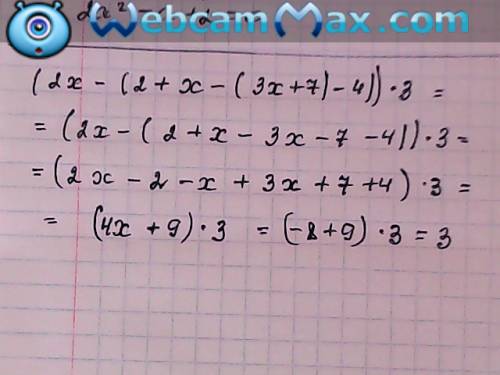 WebcamMax.com
(2x - (2 + x - (3x+7) - 4)) · 3 =
= (2x - ( 2 + x - 3x - 7 - 4)) · 3 =
= (2x - 2 - x + 3x + 7 + 4) · 3 =
= (4x + 9) · 3 = (-8+9) · 3 = 3